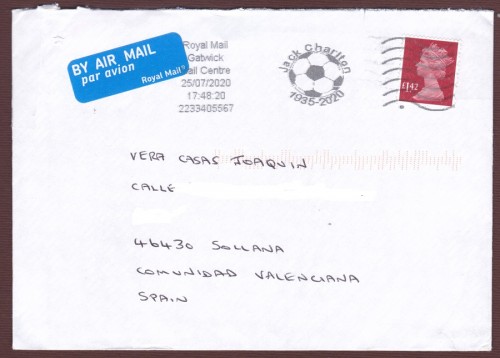 BY AIR MAIL
par avion
Royal Mail®
Royal Mail
Gatwick
Mail Centre
25/07/2020
17:48:20
2233405567
Jack Charlton
1935-2020
£1.42
VERA CASAS JOAQUIN
CALLE
46430 SOLLANA
COMUNIDAD VALENCIANA
SPAIN